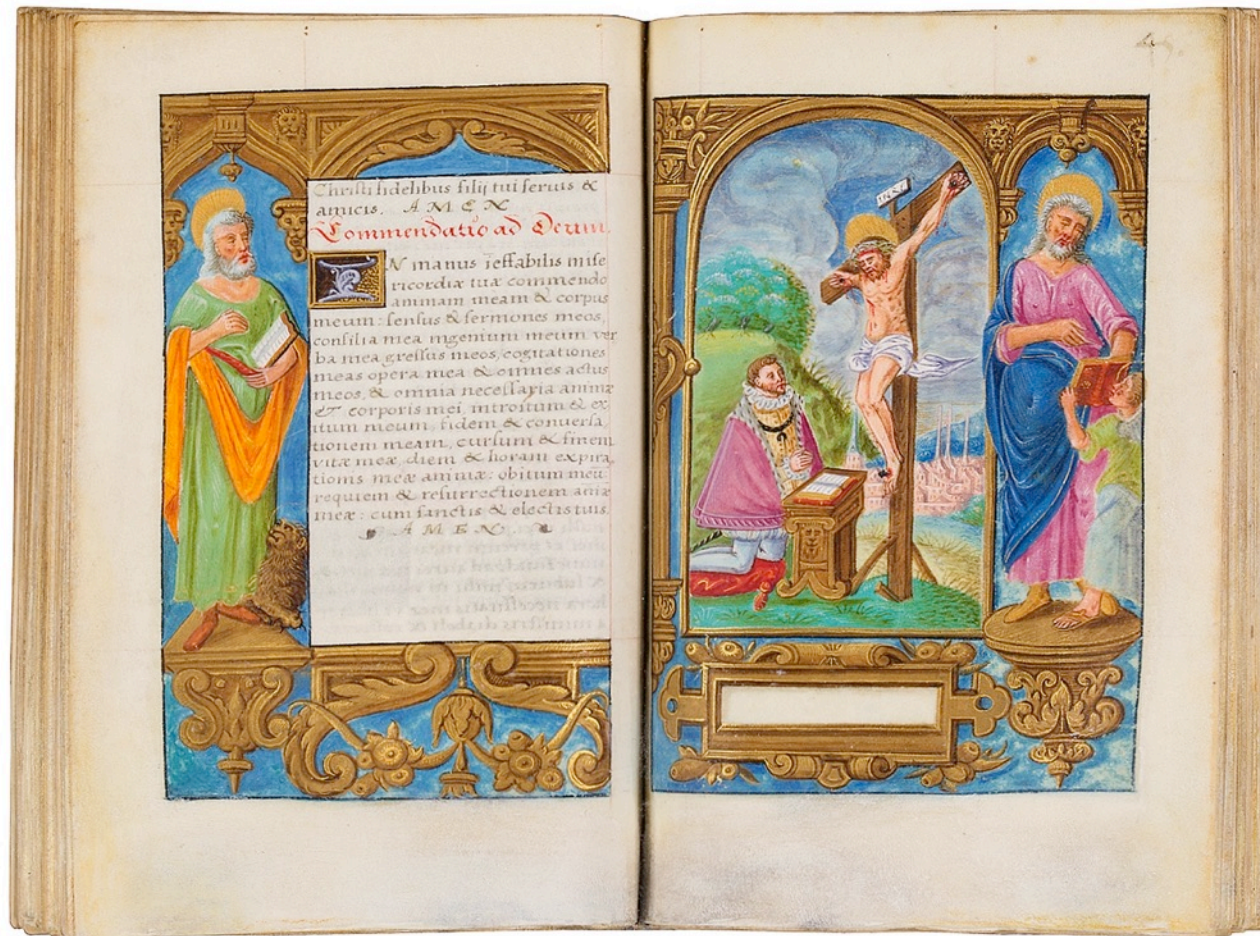 Christi fidelibus filij tui servis &
amicis. AMEN
Commendatio ad Deum.
IN manus ieffabilis mise
ricordiæ tuæ commendo
animam meam & corpus
meum: sensus & sermones meos,
consilia mea ingenium meum ver
ba mea gressus meos, cogitationes
meas opera mea & omnes actus
meos, & omnia necessaria animæ
ET corporis mei, introitum & ex
itum meum, fidem & conversa,
tionem meam, cursum & finem
vitæ meæ, diem & horam expira
tionis meæ animæ: obitum meū
requiem & resurrectionem aniæ
meæ: cum sanctis & electis tuis.
AMEN.
INRI